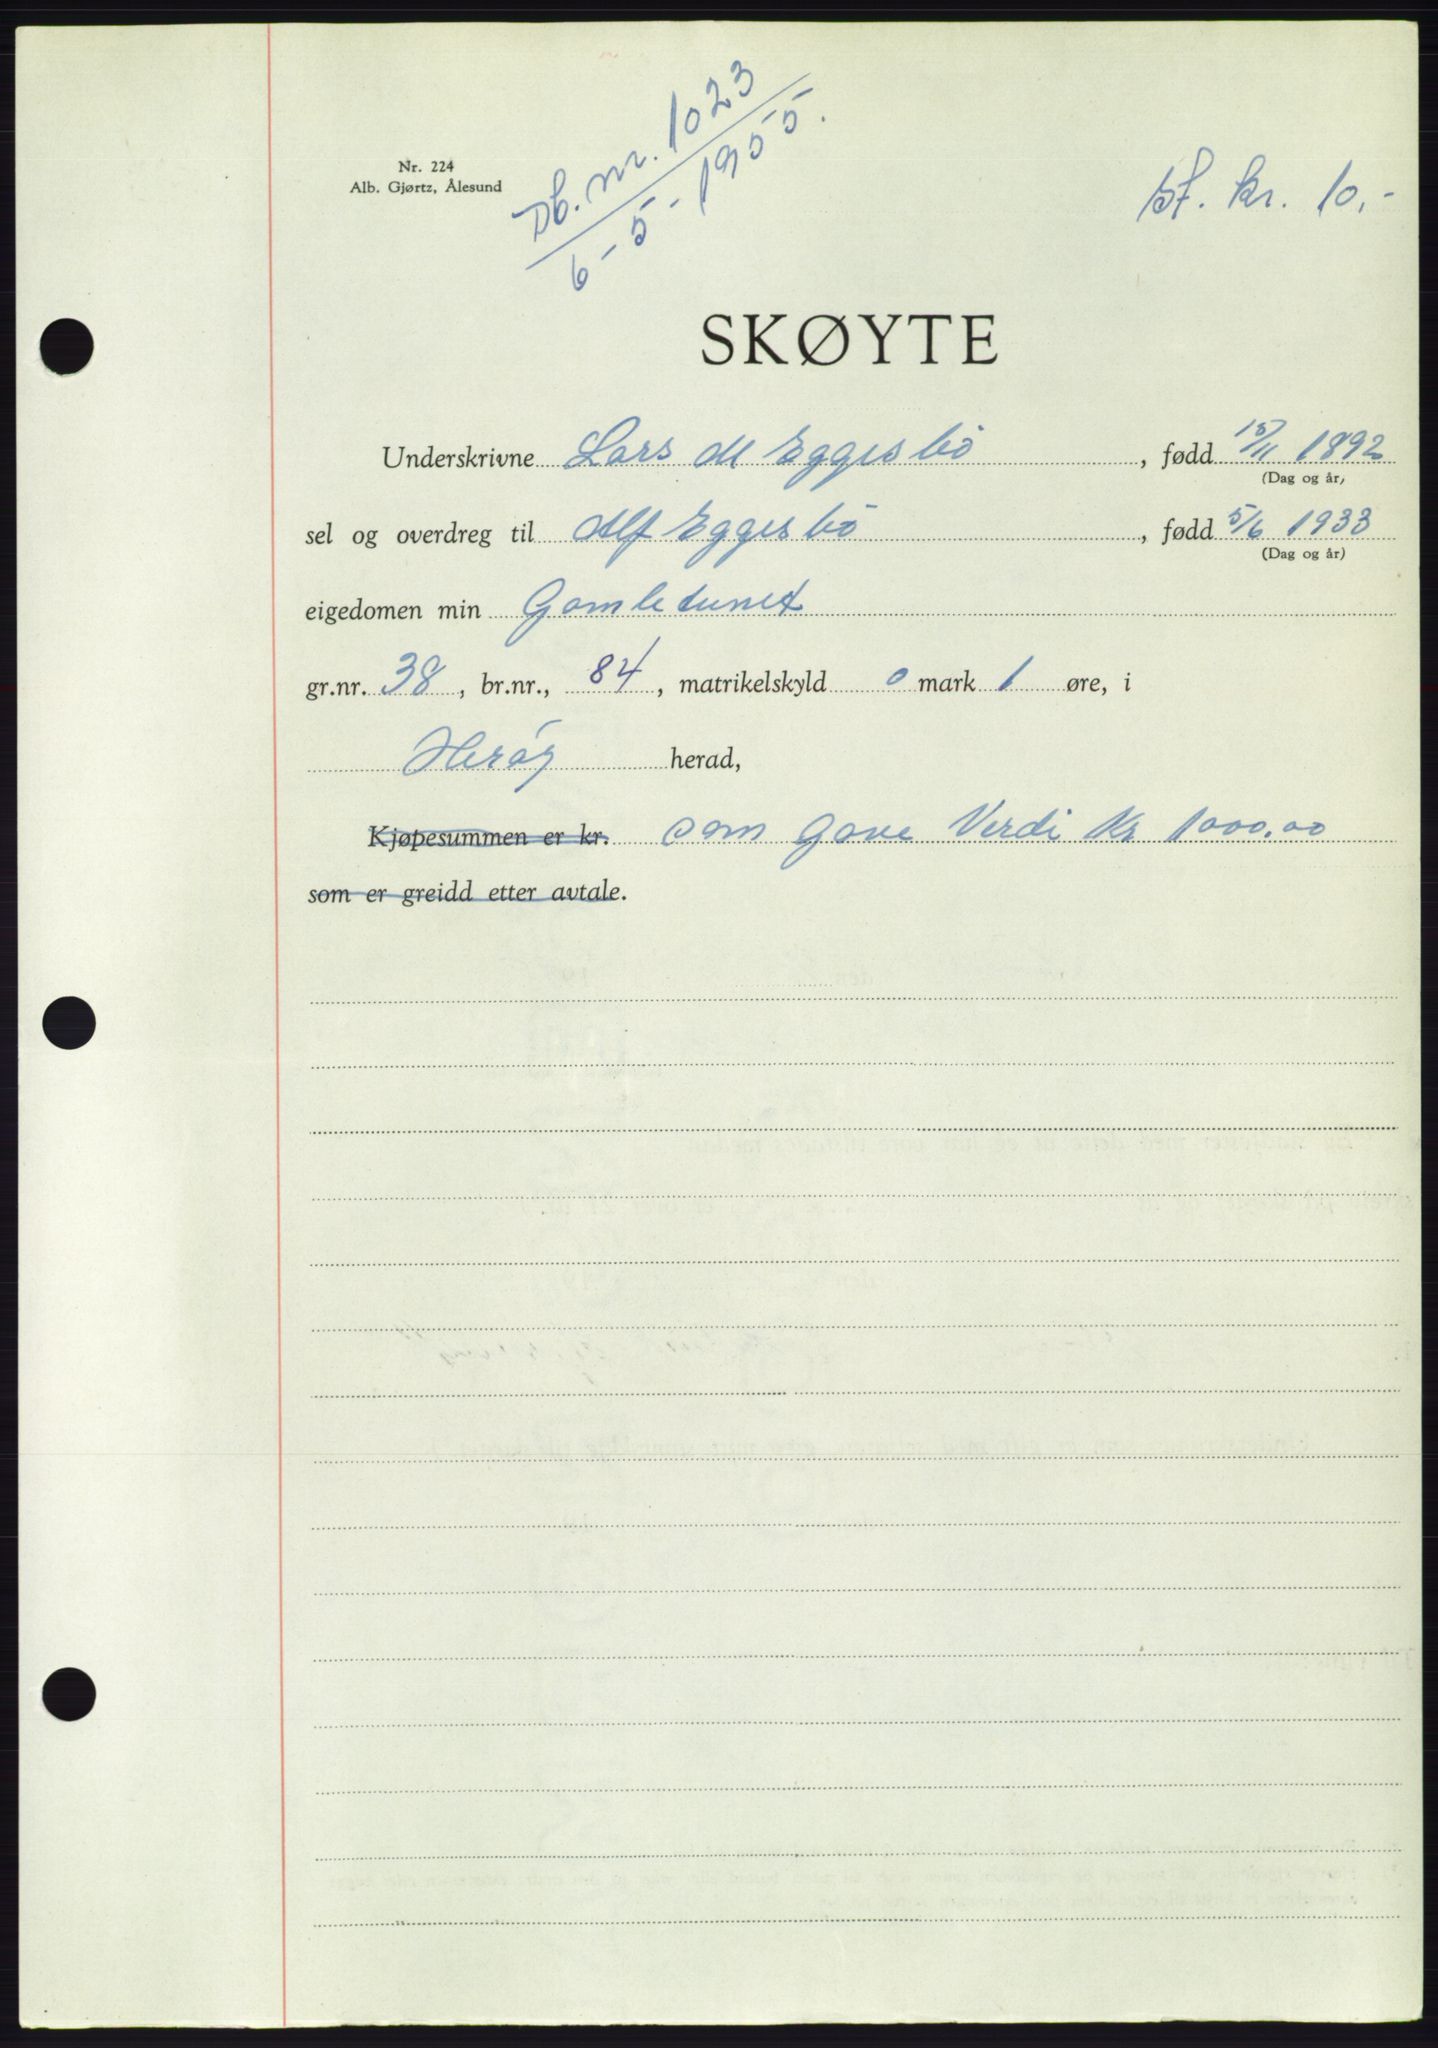 Db. nr. 1023
6-5-1955.
Nr. 224
Alb. Gjørtz, Ålesund
st. kr. 10,-
SKØYTE
Underskrivne Lars M Eggesbö, fødd 15/11 1892
(Dag og år)
sel og overdreg til Alf Eggesbö, fødd 5/6 1933
(Dag og år)
eigedomen min Gamletunet
gr.nr. 38, br.nr., 84, matrikelskyld 0 mark 1 øre, i
Heröy herad,
Kjøpesummen er kr. som gave Verdi kr 1000.00
som er greidd etter avtale.